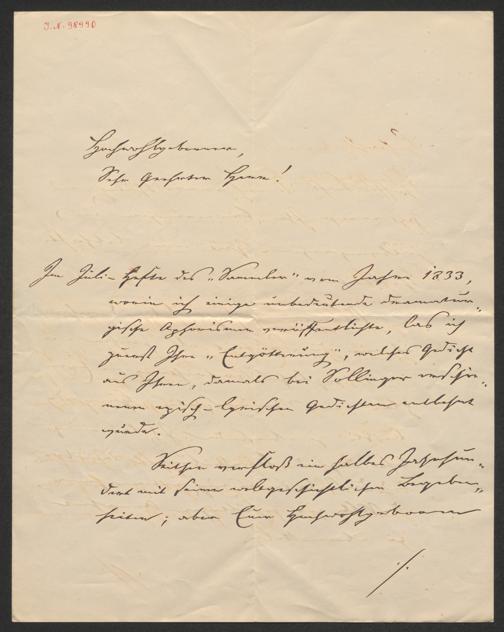 J.N. 98990
Hochwohlgeborener,
Sehr Geehrter Herr!
Im Juli-Hefte des „Sammler" vom Jahre 1833,
worin ich einige unbedeutende dramatur-
gische Aphorismen veröffentlichte, las ich
zuerst Ihre „Entgötterung", welches Gedicht
aus Ihren, damals bei Sollinger erschie-
nenen episch-lyrischen Gedichten entlehnt
wurde.
Seither verfloß ein halbes Jahrhun-
dert mit seinen weltgeschichtlichen Begeben-
heiten; aber Euer Hochwohlgeboren
./.